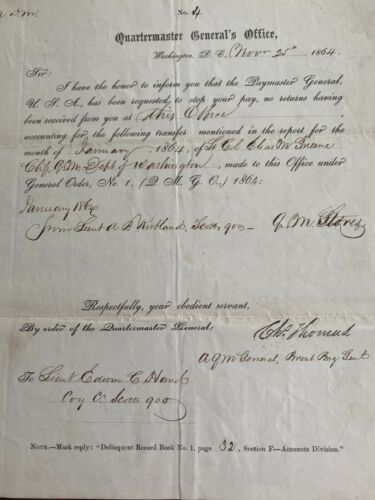 No. 4
Quartermaster General's Office,
Washington, D. C. Novr 25th 1864.
Sir:
I have the honor to inform you that the Paymaster General,
U. S. A., has been requested to stop your pay, no returns having
been received from you at this Office,
accounting for the following transfer mentioned in the report for the
month of January, 1864, of Lt Col. Chas. M. Greene
Chf. Q. M. Dept of Washington, made to this Office under
General Order, No. 1, (Q. M. G. O.,) 1864:
January 1864
from Lieut A R Kirkland, - Q. M. Stores
Respectfully, your obedient servant,
By order of the Quartermaster General:
Chs. Thomas
A Q M General, Brevt Brig Genl
To Lieut Edwin C.
Coy C.
NOTE.—Mark reply: "Delinquent Record Book No. 1, page 32, Section F—Accounts Division."